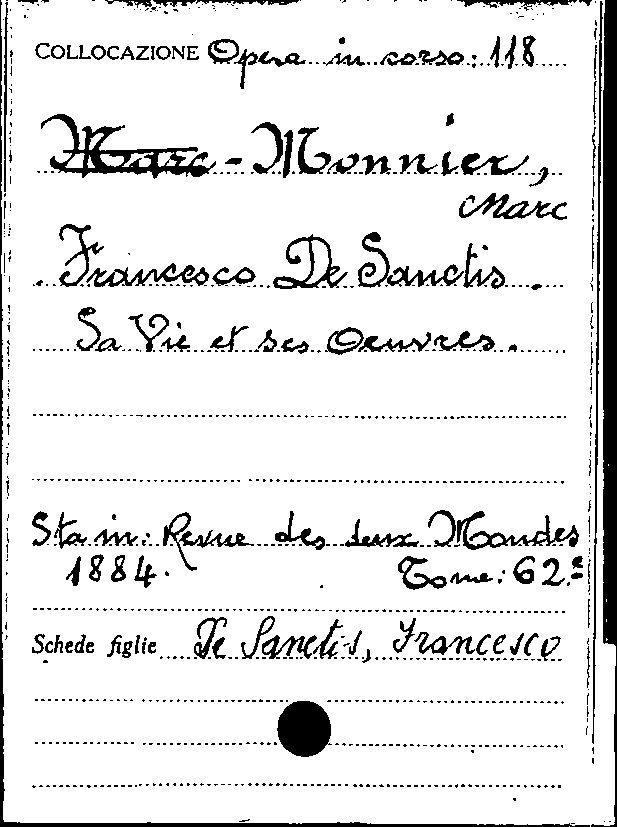 COLLOCAZIONE Opera in corso: 118
Marc - Monnier,
Marc
Francesco De Sanctis.
Sa Vie et ses Oeuvres.
Sta in: Revue des deux Mondes
1884. Tome: 62.e
Schede figlie De Sanctis, Francesco